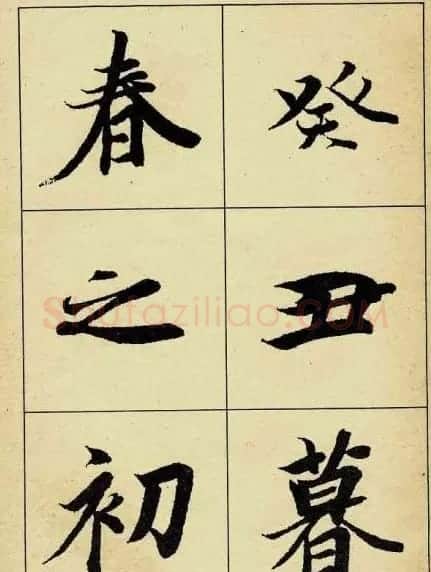 癸丑暮
春之初
Shufaziliao.com